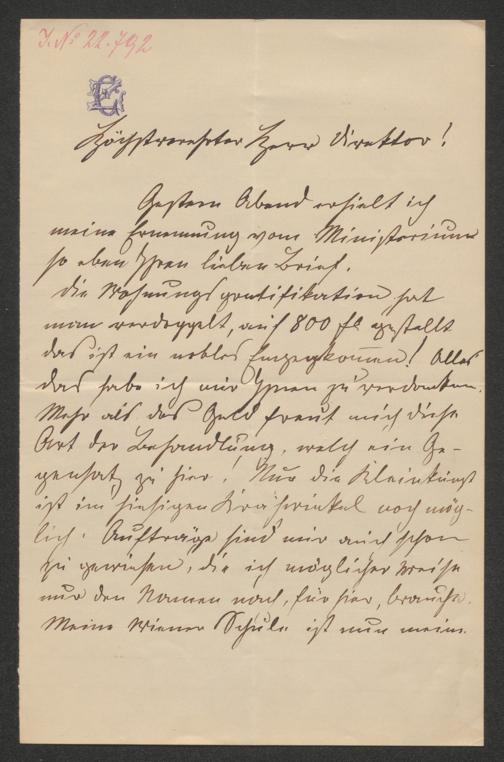 J. No 22.792
Höchstverehrter Herr Direktor!
Gestern Abend erhielt ich
meine Ernennung vom Ministerium
so eben Ihren lieben Brief.
Die Wohnungsgratifikation hat
man verdoppelt, auf 800 fl gestellt
das ist ein nobles Entgegkommen! Alles
das habe ich nur Ihnen zu verdanken.
Mehr als das Geld freut mich diese
Art der Behandlung, welch ein Ge-
gensatz zu hier! Nur die Kleinkunst
ist im hiesigen Krähwinkel noch mög-
lich. Aufträge sind mir auch schon
zu gewiesen, die ich möglicher Weise
nur den Namen nach, für hier, brauche.
Meine Wiener Schule ist nun mein